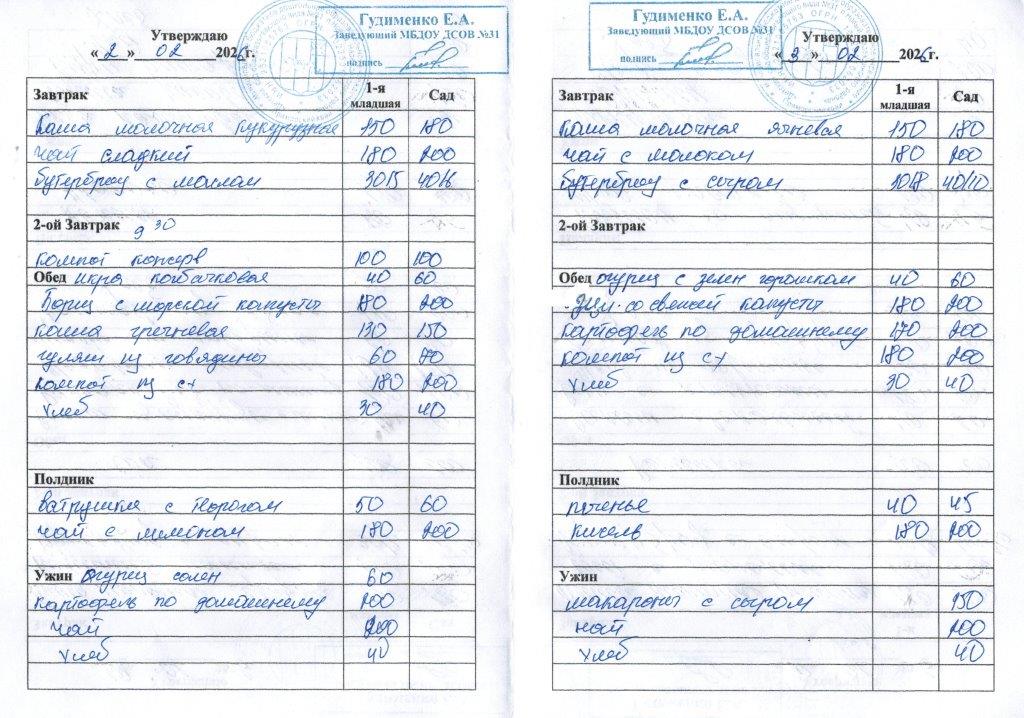 Гудименко Е.А.
Заведующий МБДОУ ДСОВ №31
подпись
Утверждаю
« 2 » 02 2026г.
Завтрак 1-я младшая Сад
Каша молочная кукурузная 150 180
Чай сладкий 180 200
бутерброд с маслом 30/5 40/6
2-ой Завтрак 9 30
компот консерв 100 100
Обед икра кабачковая 40 60
Борщ с морской капусты 180 200
каша гречневая 130 150
гуляш из говядины 60 70
компот из с/х 180 200
хлеб 30 40
Полдник
Ватрушка с творогом 50 60
чай с лимоном 180 200
Ужин Огурец солен 60
картофель по домашнему 200
чай 200
хлеб 40
Гудименко Е.А.
Заведующий МБДОУ ДСОВ №31
подпись
Утверждаю
« 3 » 02 2026г.
Завтрак 1-я младшая Сад
Каша молочная ячневая 150 180
чай с молоком 180 200
бутерброд с сыром 30/8 40/10
2-ой Завтрак
Обед огурец с зелен горошком 40 60
Щи со свежей капусты 180 200
картофель по домашнему 170 200
компот из с/х 180 200
хлеб 30 40
Полдник
печенье 40 45
кисель 180 200
Ужин
макароны с сыром 150
чай 200
хлеб 40